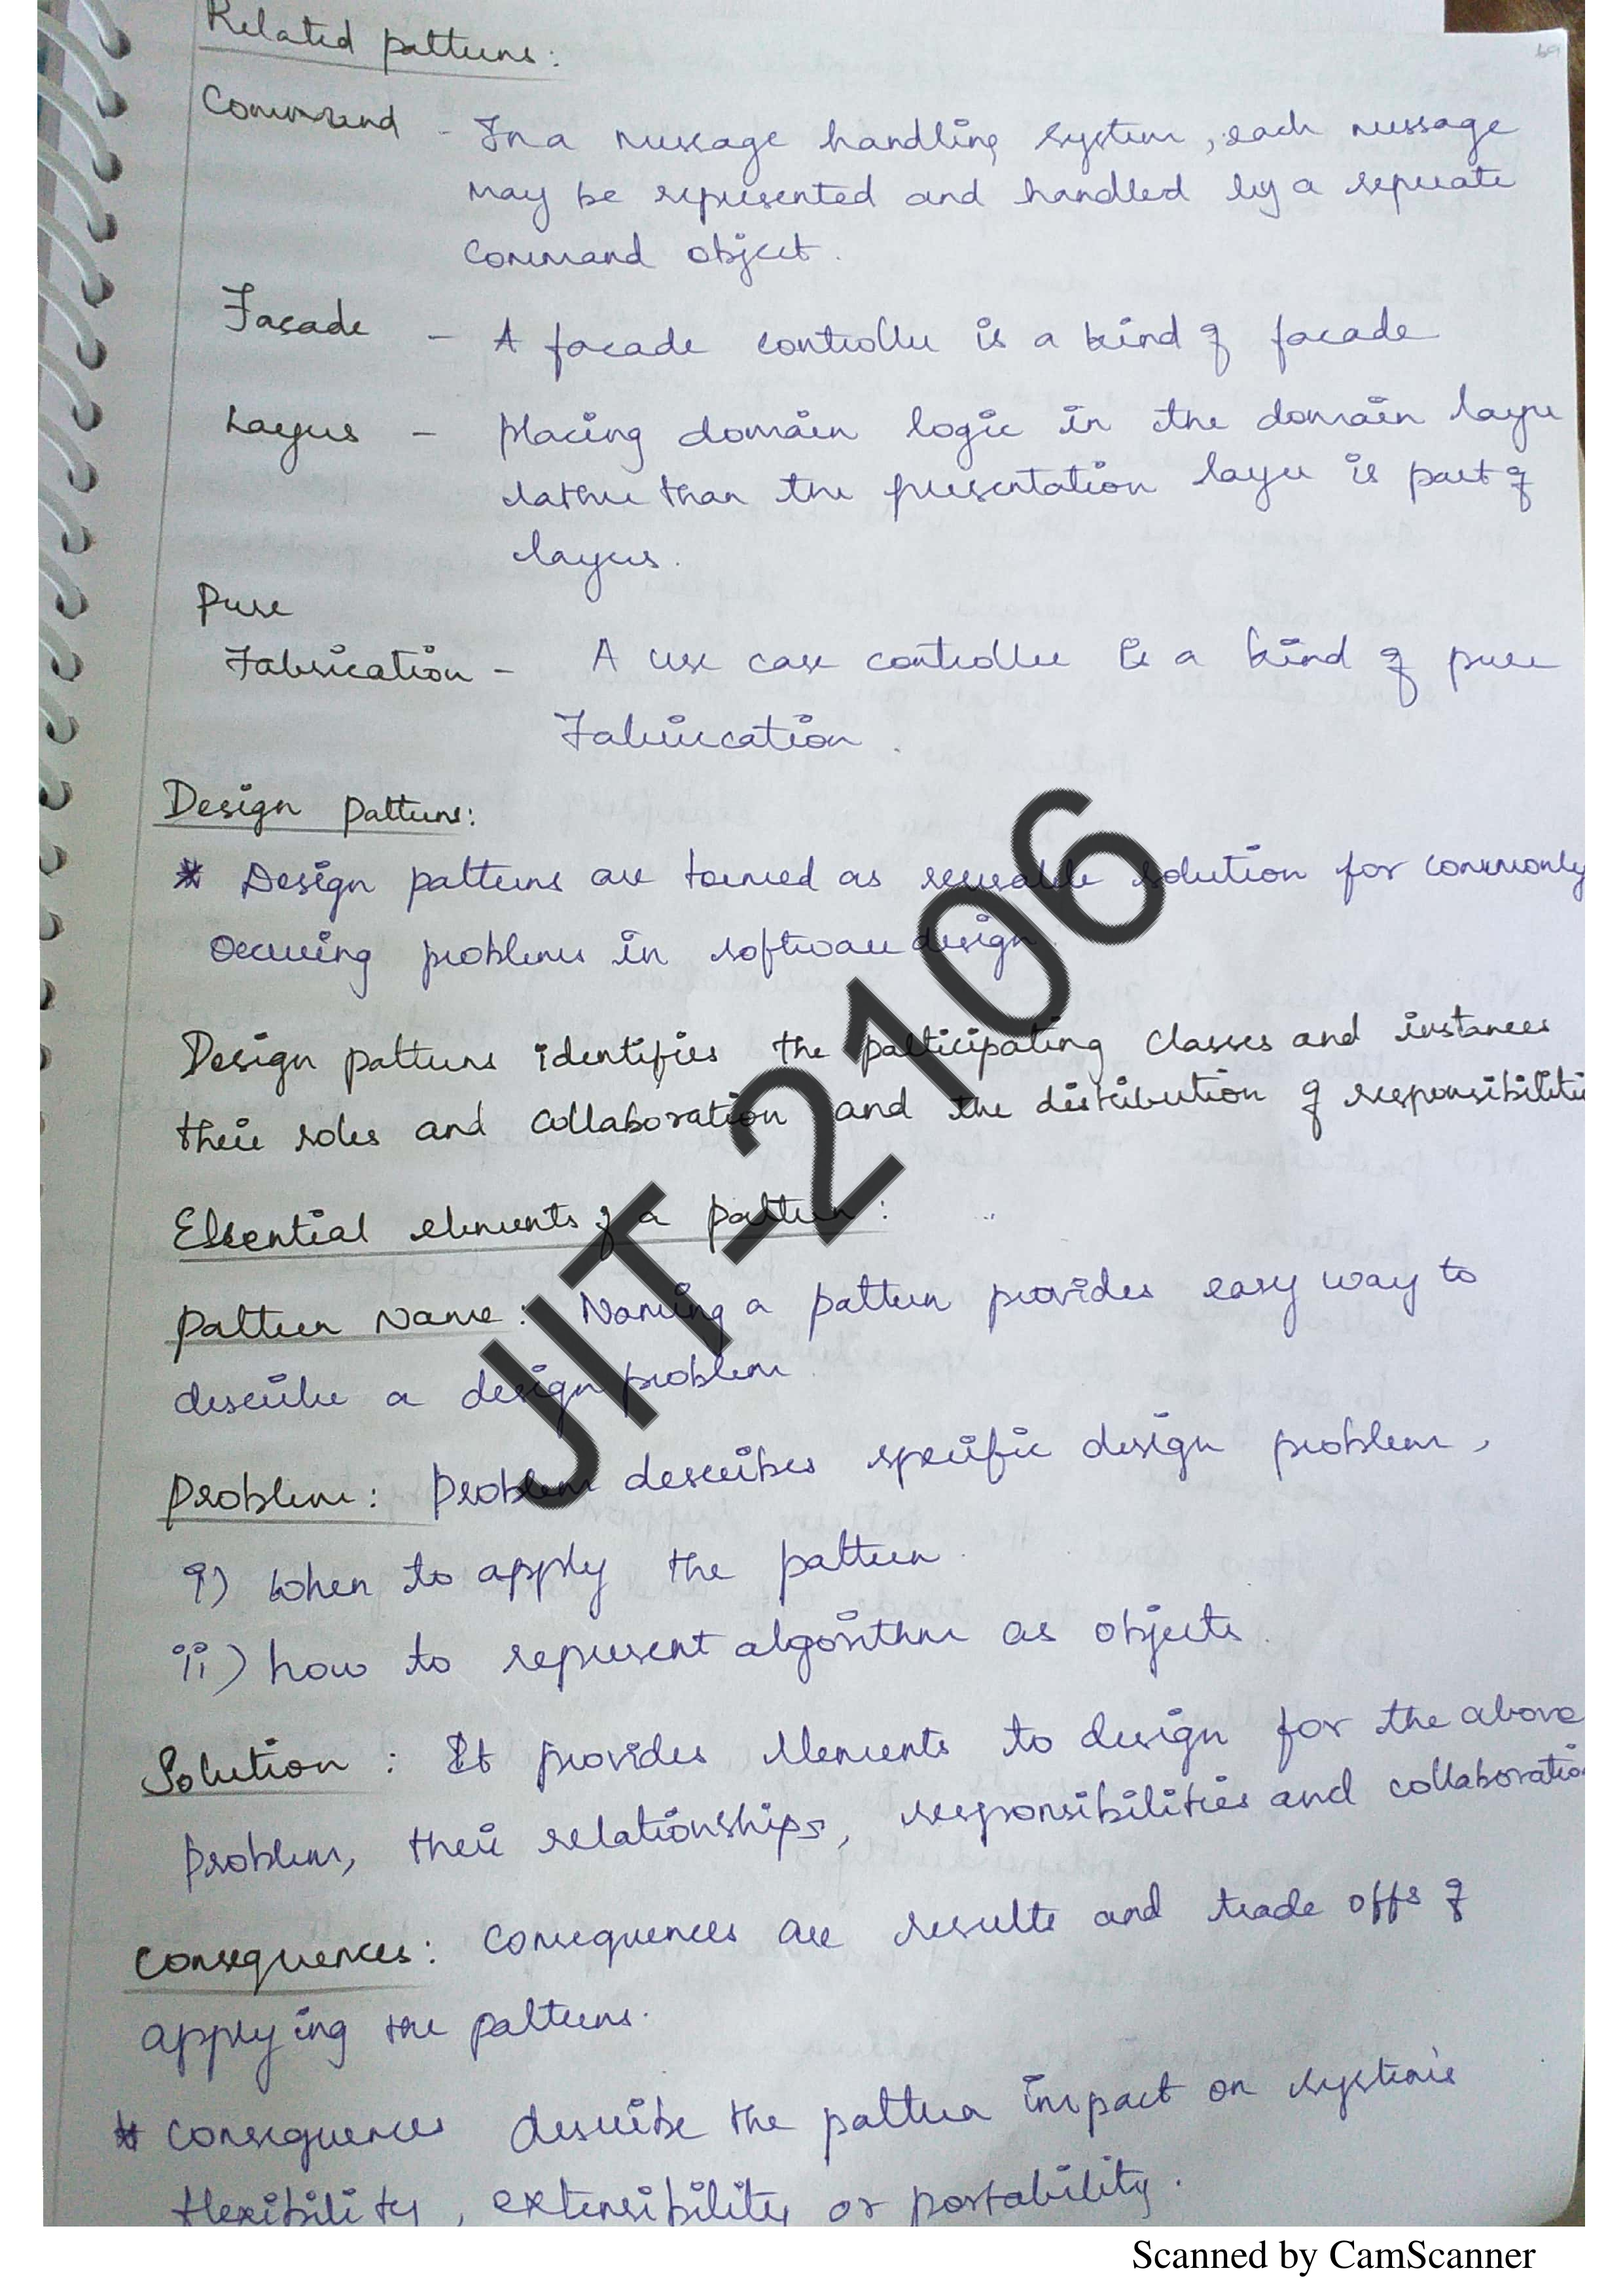 69
Related patterns:
Command - In a message handling system, each message
may be represented and handled by a seperate
command object.
Facade - A facade controller is a kind of facade
Layers - placing domain logic in the domain layer
rather than the presentation layer is part of
layers.
Pure
Fabrication - A use case controller is a kind of pure
Fabrication.
Design patterns:
* Design patterns are termed as reusable solution for commonly
occuring problems in software design.
Design patterns identifies the participating classes and instances
their roles and collaboration and the distribution of responsibilitie
Essential elements of a pattern:
Pattern Name: Naming a pattern provides easy way to
describe a design problem
Problem: Problem describes specific design problem,
i) when to apply the pattern.
ii) how to represent algorithm as objects.
Solution: It provides elements to design for the above
problem, their relationships, responsibilities and collaboration
Consequences: Consequences are results and trade offs of
applying the patterns.
* Consequences describe the pattern impact on system's
flexibility, extensibility or portability.
JIT-2106
Scanned by CamScanner